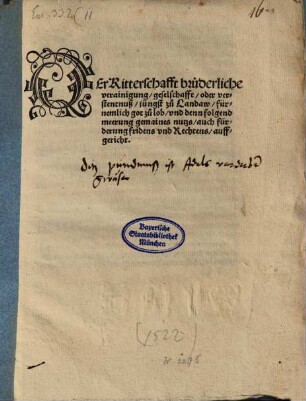 Eur. 332 (11
DEr Ritterschafft brüderliche
verainigung/ geselschafft/ oder ver-
stentnuß/ jüngst zů Landaw/ für-
nemlich got zů lob/ vnd denn folgend
meerung gemaines nutz/ auch für-
derung fridens vnd Rechtens/ auff-
gericht.
Bayerische
Staatsbibliothek
München
(1522)